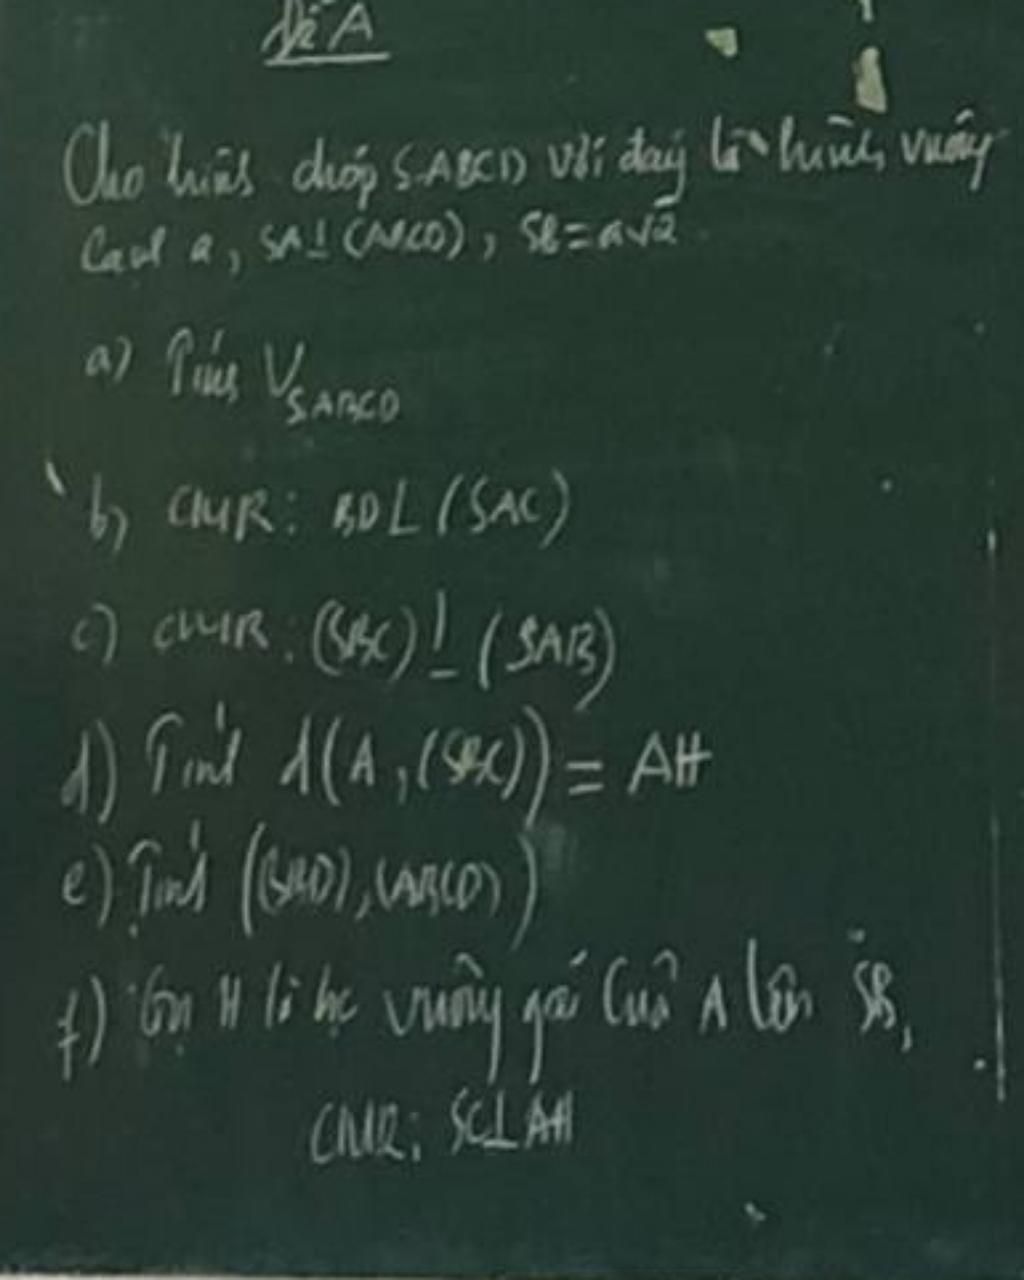 Đề A
Cho hình chóp S.ABCD với đáy là hình vuông
Cạnh a, SA⊥(ABCD), SB=a√2.
a) Tính V_SABCD
b) CMR: BD⊥(SAC)
c) CMR: (SBC)⊥(SAB)
d) Tính d(A,(SBC)) = AH
e) Tính ((SBD),(ABCD))
f) Gọi H là hc vuông góc của A lên SB,
CMR: SC⊥AH